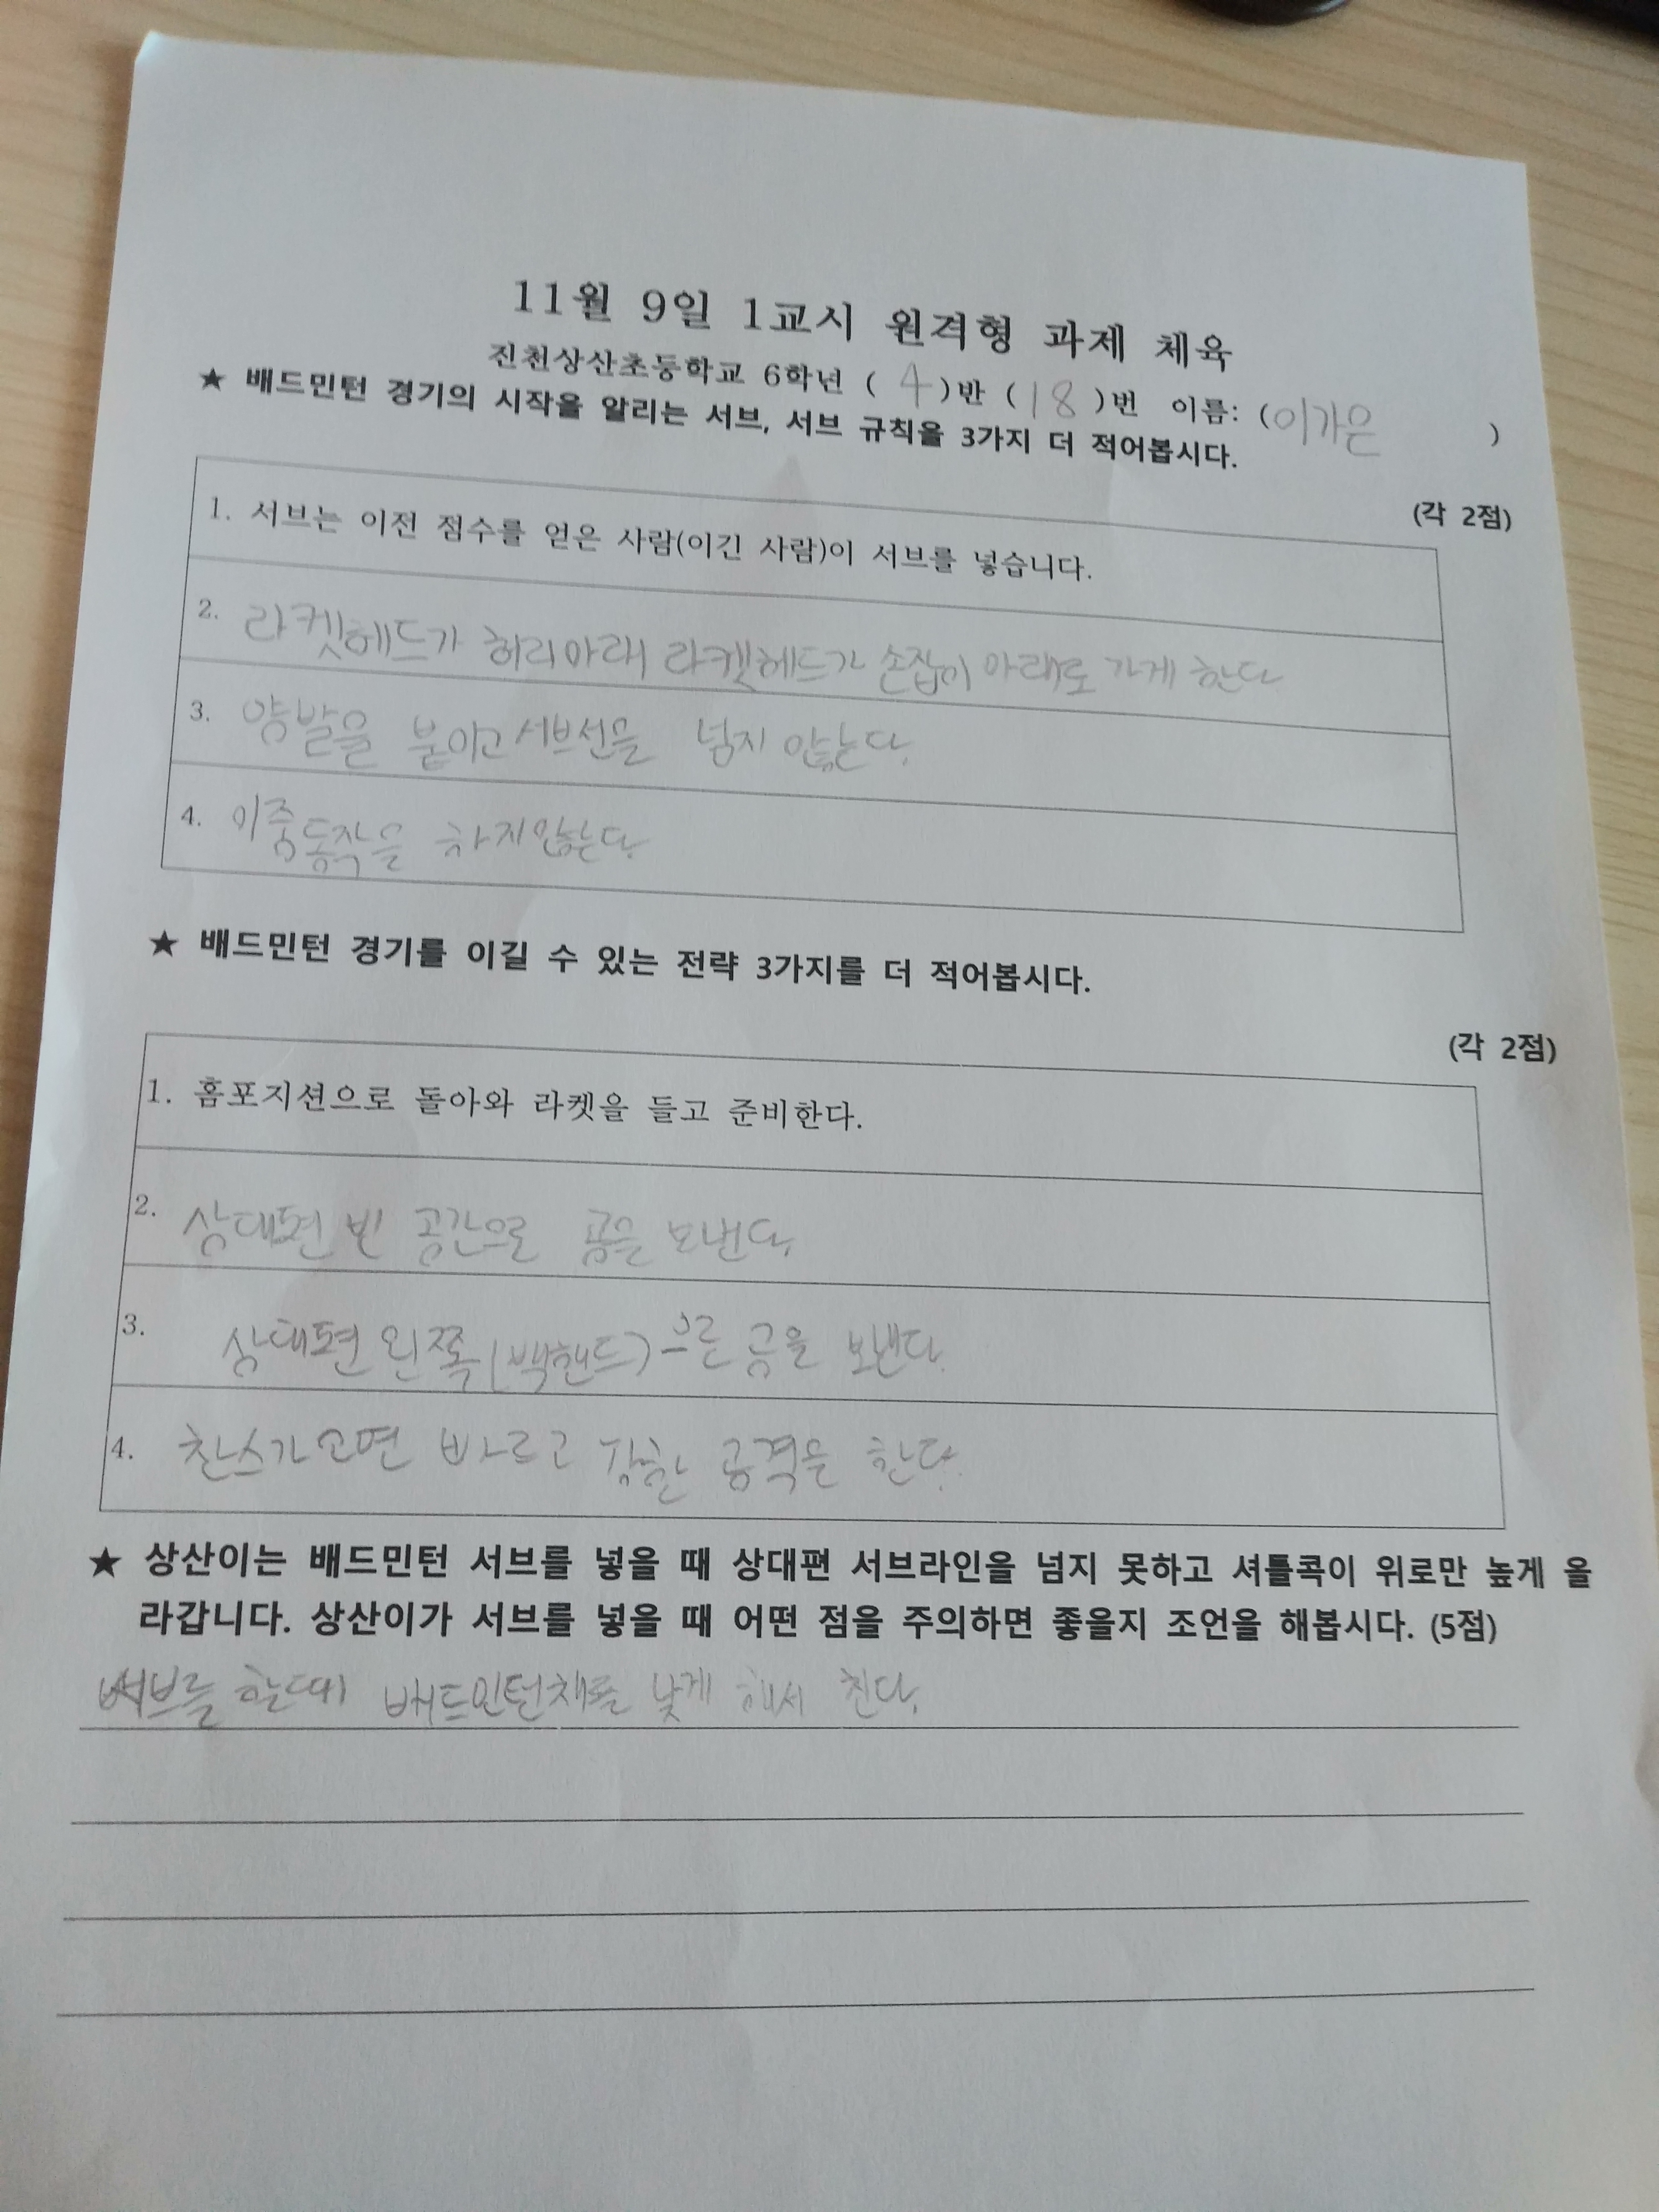 11월 9일 1교시 원격형 과제 체육
진천상산초등학교 6학년 ( 4 )반 ( 18 )번 이름: (이가은 )
★ 배드민턴 경기의 시작을 알리는 서브, 서브 규칙을 3가지 더 적어봅시다.
(각 2점)
1. 서브는 이전 점수를 얻은 사람(이긴 사람)이 서브를 넣습니다.
2. 라켓헤드가 허리아래 라켓헤드가 손잡이 아래로 가게 한다
3. 양발을 붙이고 서브선을 넘지 않는다.
4. 이중동작을 하지않는다.
★ 배드민턴 경기를 이길 수 있는 전략 3가지를 더 적어봅시다.
(각 2점)
1. 홈포지션으로 돌아와 라켓을 들고 준비한다.
2. 상대편 빈 공간으로 공을 보낸다.
3. 상대편 왼쪽(백핸드)으로 공을 보낸다.
4. 찬스가 오면 빠르고 강한 공격을 한다.
★ 상산이는 배드민턴 서브를 넣을 때 상대편 서브라인을 넘지 못하고 셔틀콕이 위로만 높게 올
라갑니다. 상산이가 서브를 넣을 때 어떤 점을 주의하면 좋을지 조언을 해봅시다. (5점)
서브를 할때 배드민턴채를 낮게 해서 친다.